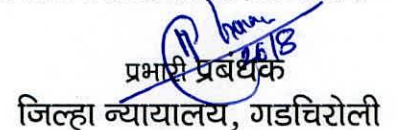 26/8
प्रभारी प्रबंधक
जिल्हा न्यायालय, गडचिरोली